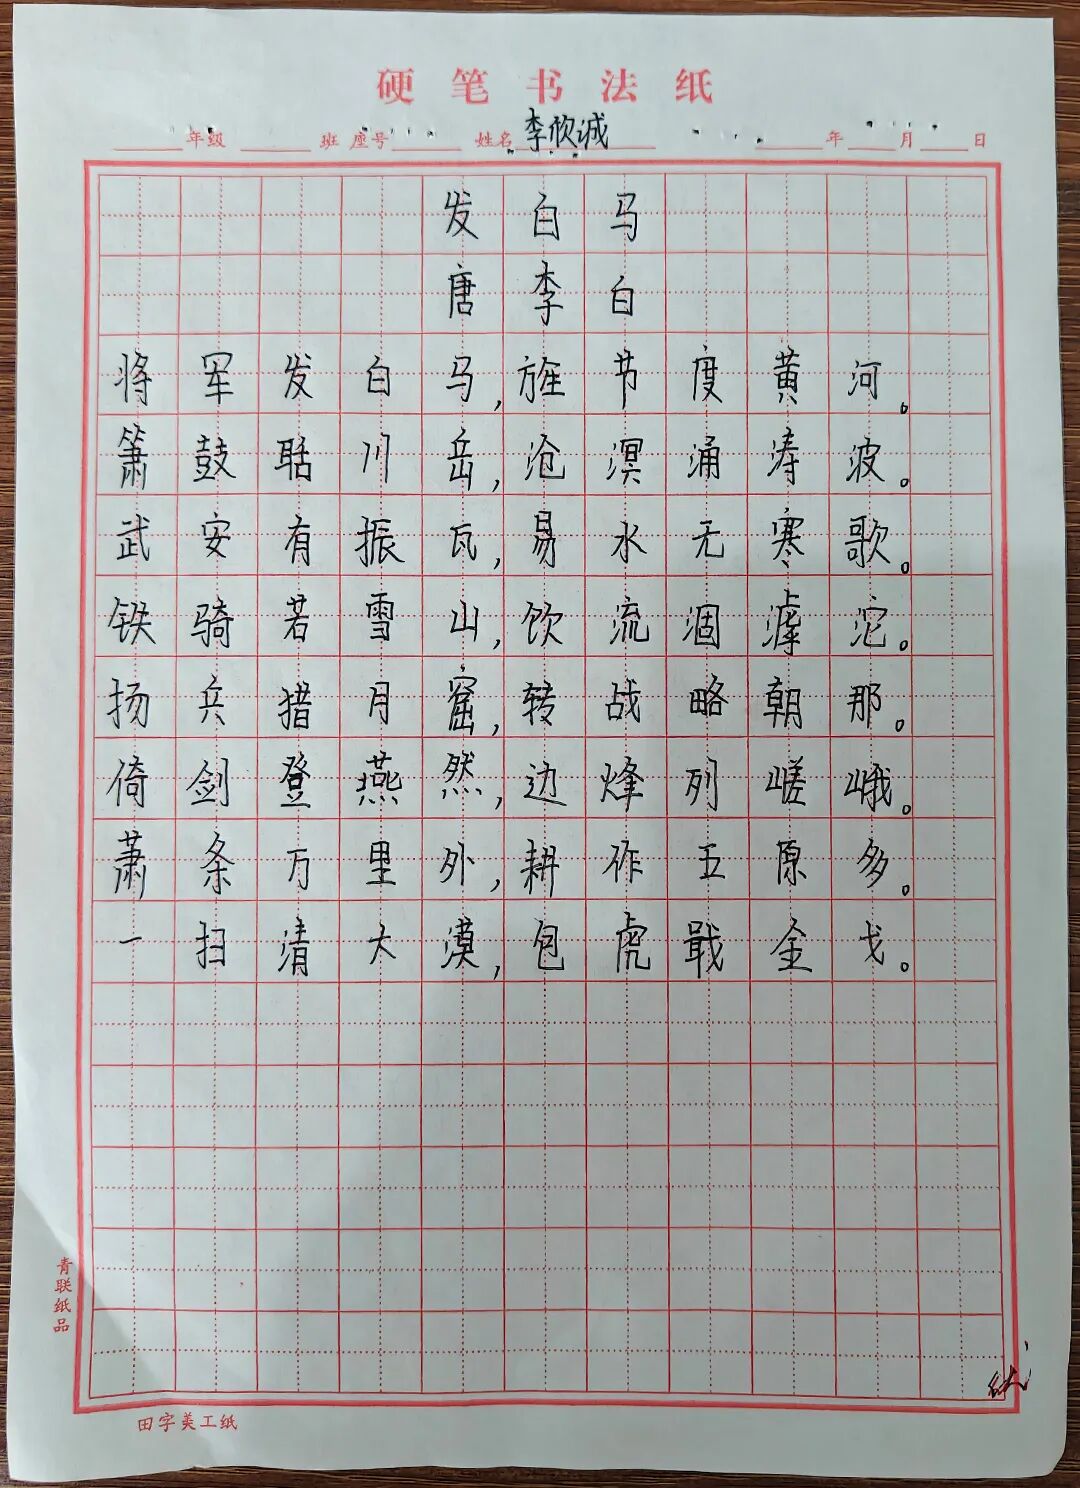 硬笔书法纸
年级 班 座号 姓名 李欣诚 年 月 日
发白马
唐李白
将军发白马,旌节度黄河。
箫鼓聒川岳,沧溟涌涛波。
武安有振瓦,易水无寒歌。
铁骑若雪山,饮流涸滹沱。
扬兵猎月窟,转战略朝那。
倚剑登燕然,边烽列嵯峨。
萧条万里外,耕作五原多。
一扫清大漠,包虎戢金戈。
青联纸品
田字美工纸
优